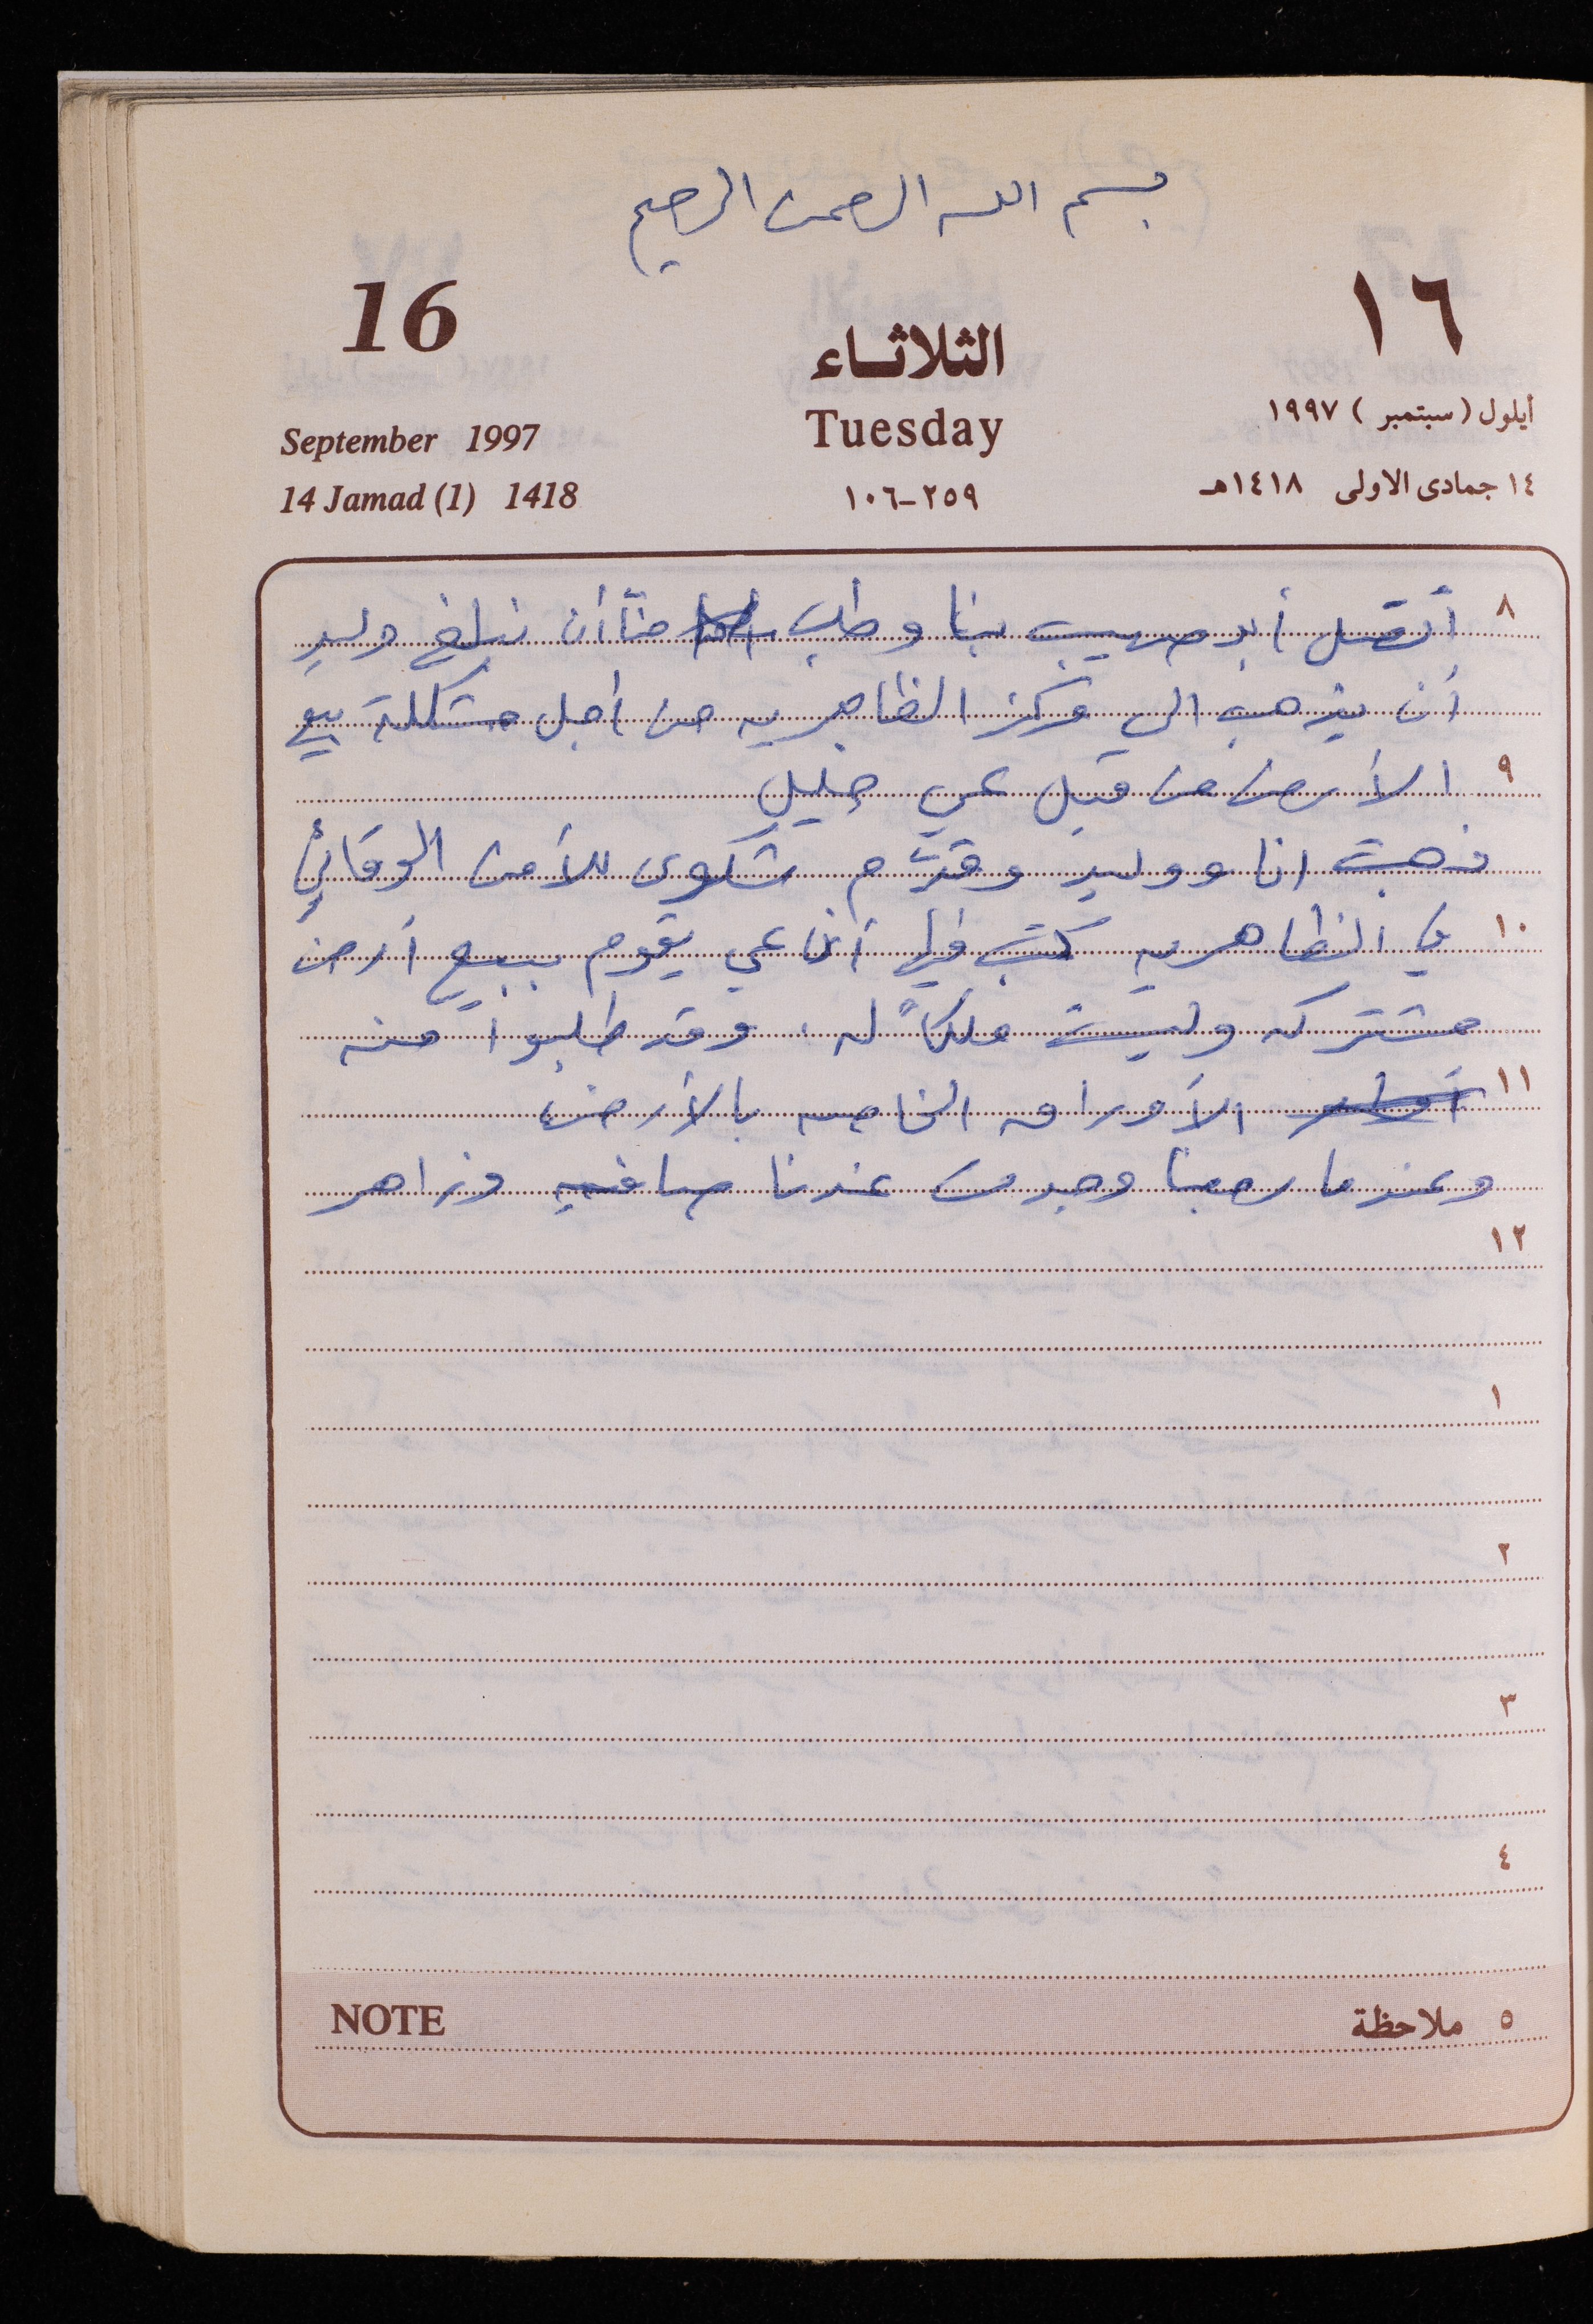 بسم الله الرحمن الرحيم
16
١٦
الثلاثاء
Tuesday
September 1997
أيلول (سبتمبر) ١٩٩٧
14 Jamad (1) 1418
٢٥٩-١٠٦
١٤ جمادى الاولى ١٤١٨هـ
٨ أتصل أبو صهيب بنا وطلب منا أن نبلغ وليد
أن يذهب الي مركز الظاهريه من أجل مشكلة بيع
٩ الأرض من قبل عمي خليل
ذهبت انا ووليد وقدّم شكوى للأمن الوقائي
١٠ في الظاهريه كتب فيها أن عمي يقوم ببيع أرض
مشتركه وليست ملكاً له. وقد طلبوا منه
١١ الأوراق الخاصه بالأرض
وعندما رجعنا وجدت عندنا صافيه وزاهر
١٢
١
٢
٣
٤
NOTE
٥ ملاحظة